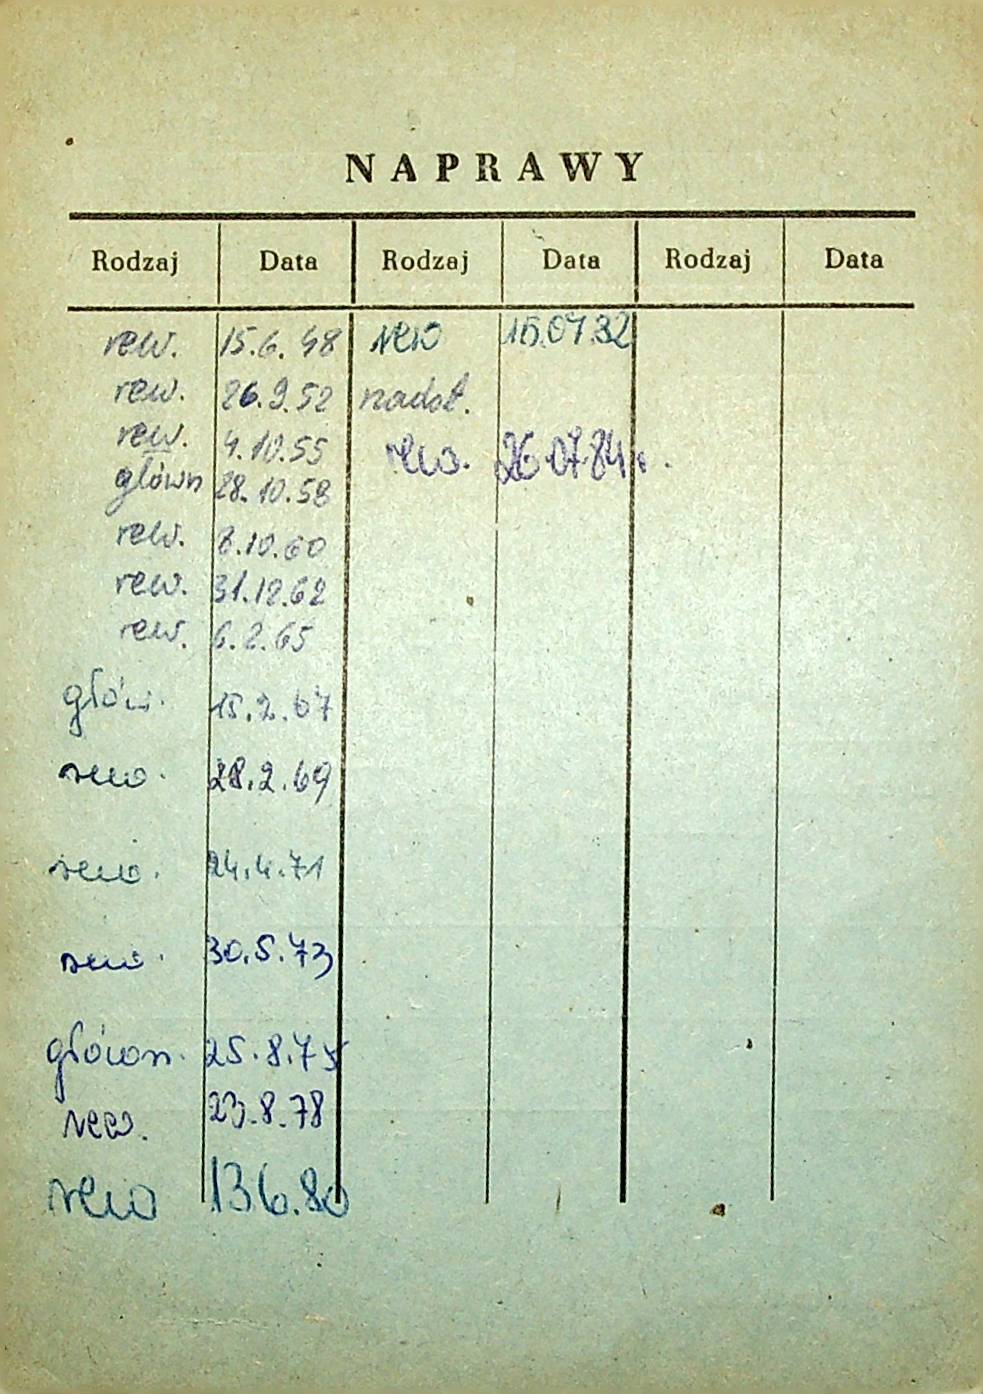 NAPRAWY
Rodzaj Data Rodzaj Data Rodzaj Data
rew. 15.6.48 rew 15.07.82
rew. 26.9.52 nadot.
rew. 4.10.55 rew. 26.07.84r.
główn 28.10.58
rew. 8.10.60
rew. 31.12.62
rew. 6.2.65
głów. 15.2.67
rew. 28.2.69
rew. 24.4.71
rew. 30.5.73
główn. 25.8.75
rew. 23.8.78
rew 13 6.80